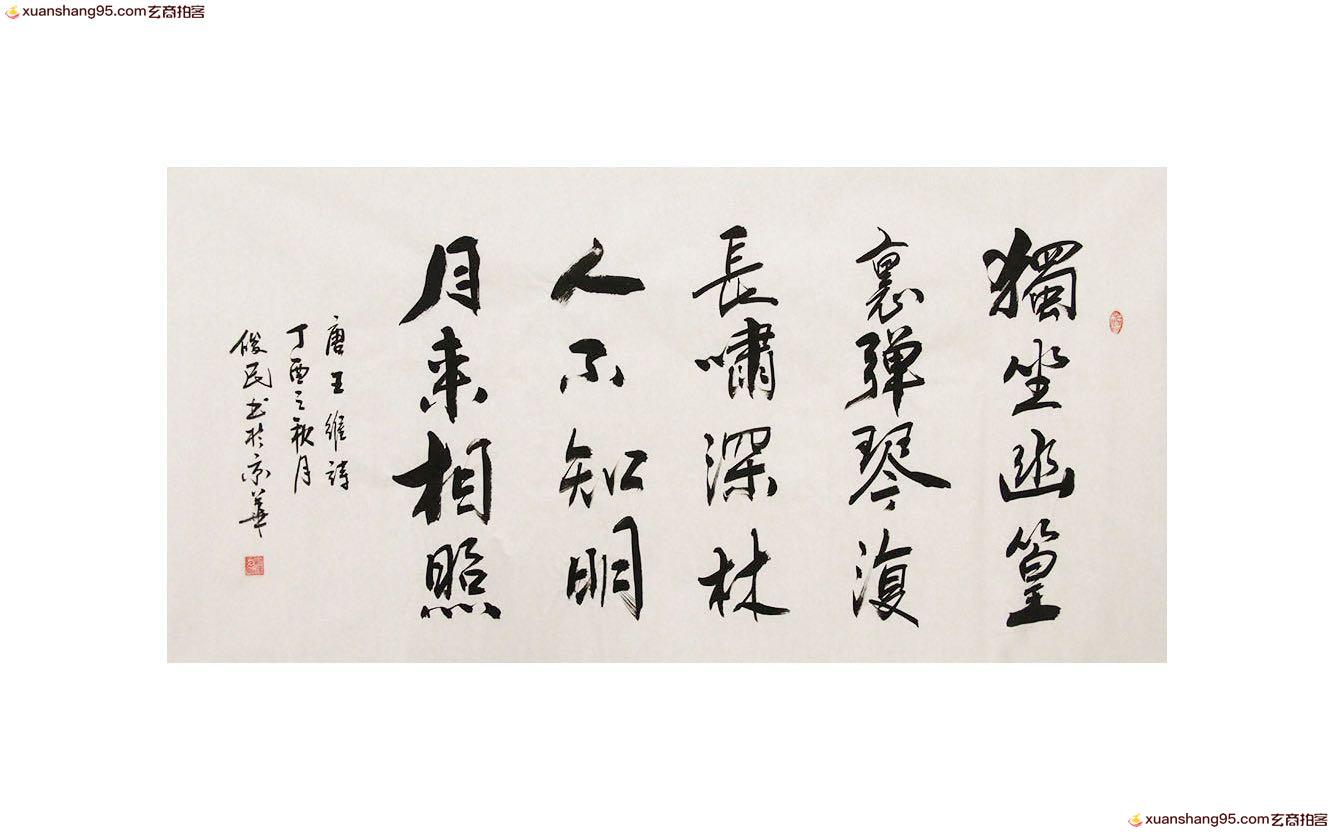 xuanshang95.com玄商拍客
獨坐幽篁
裏弹琴復
長嘯深林
人不知明
月来相照
唐王維詩
丁酉之秋月
俊民书於京華
xuanshang95.com玄商拍客